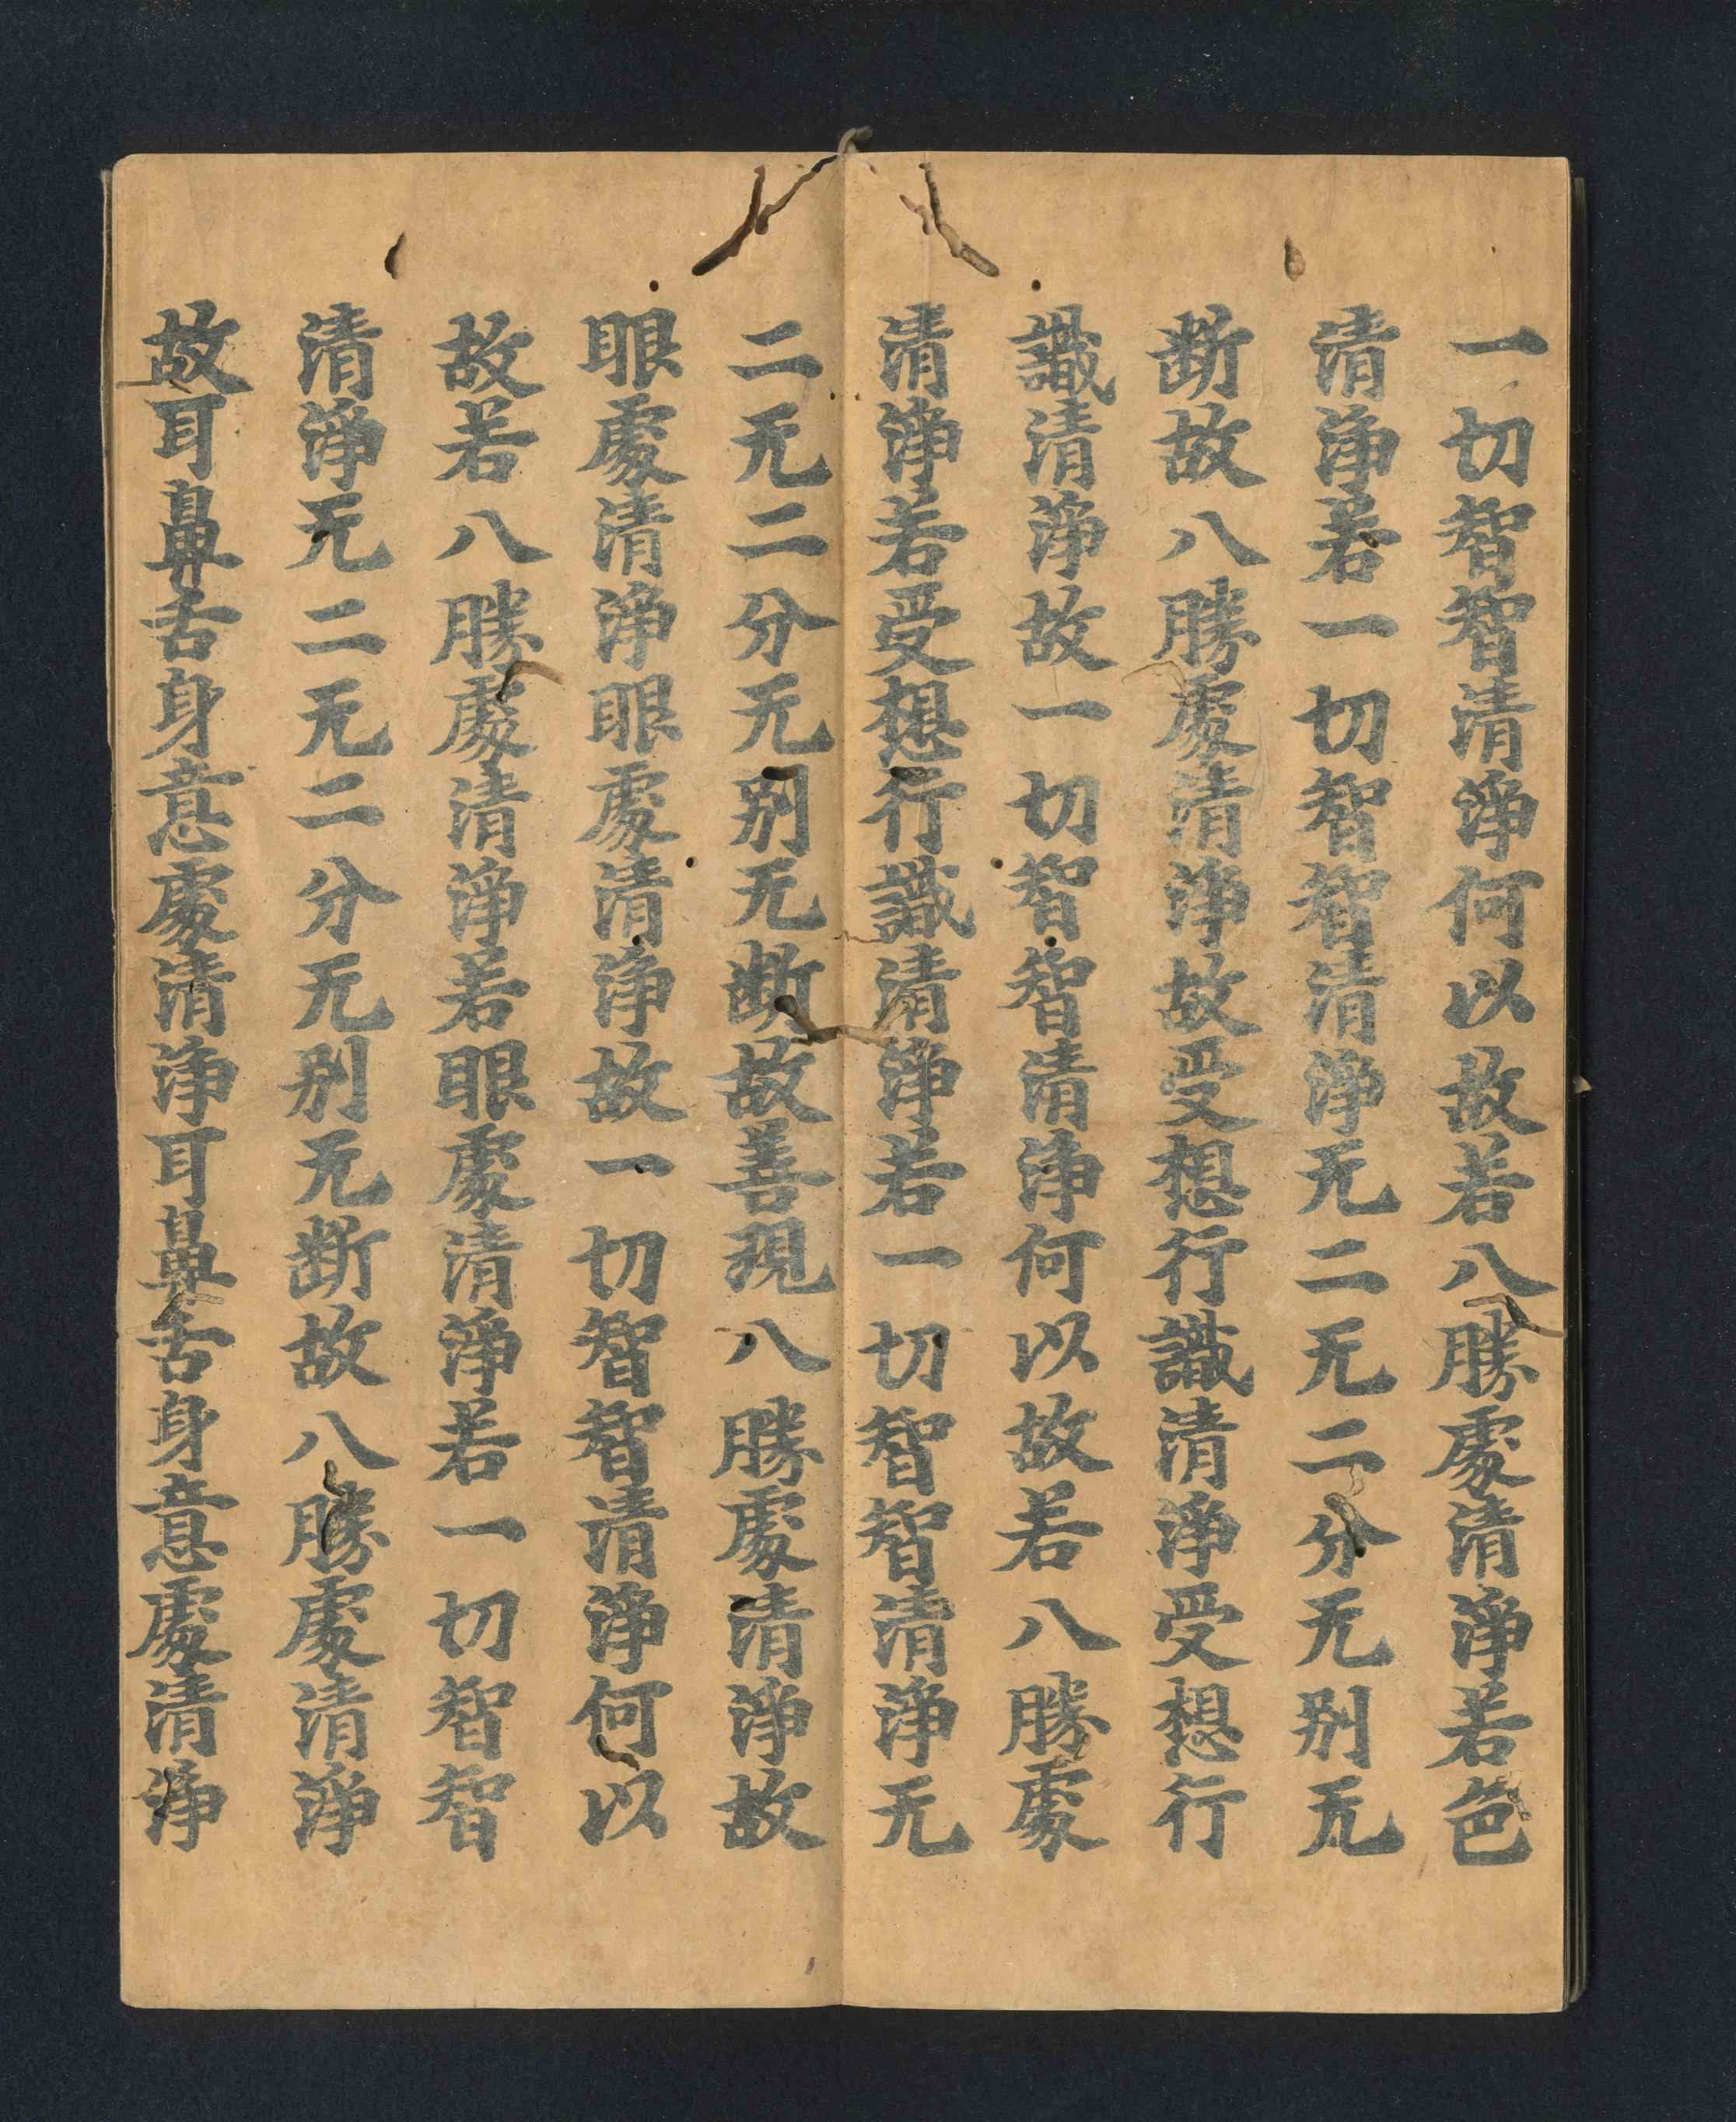 一切智智清淨何以故若八勝處清淨若色
清淨若一切智智清淨无二无二分无别无
断故八勝處清淨故受想行識清淨受想行
識清淨故一切智智清淨何以故若八勝處
清淨若受想行識清淨若一切智智清淨无
二无二分无别无断故善現八勝處清淨故
眼處清淨眼處清淨故一切智智清淨何以
故若八勝處清淨若眼處清淨若一切智智
清淨无二无二分无别无断故八勝處清淨
故耳鼻舌身意處清淨耳鼻舌身意處清淨